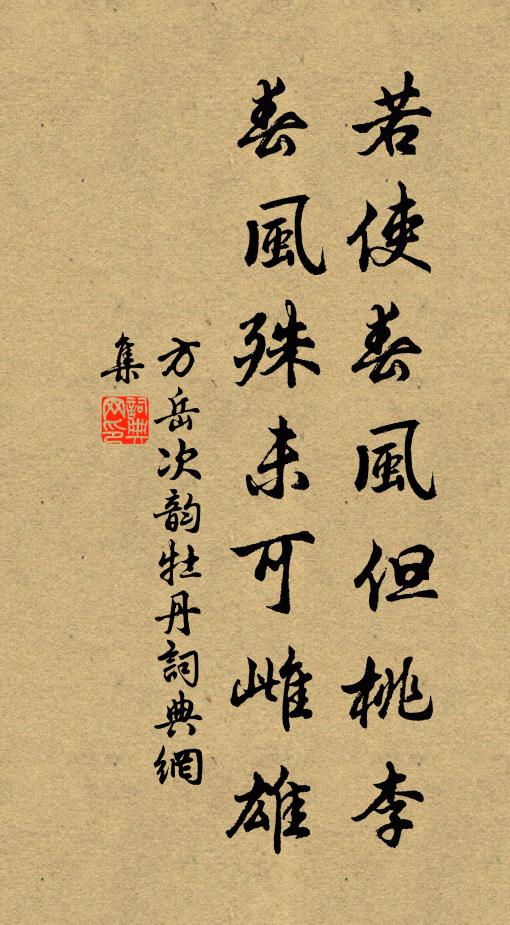 若使春風但桃李
春風殊未可雌雄
方岳次韵牡丹詞典網
集
詞典網印